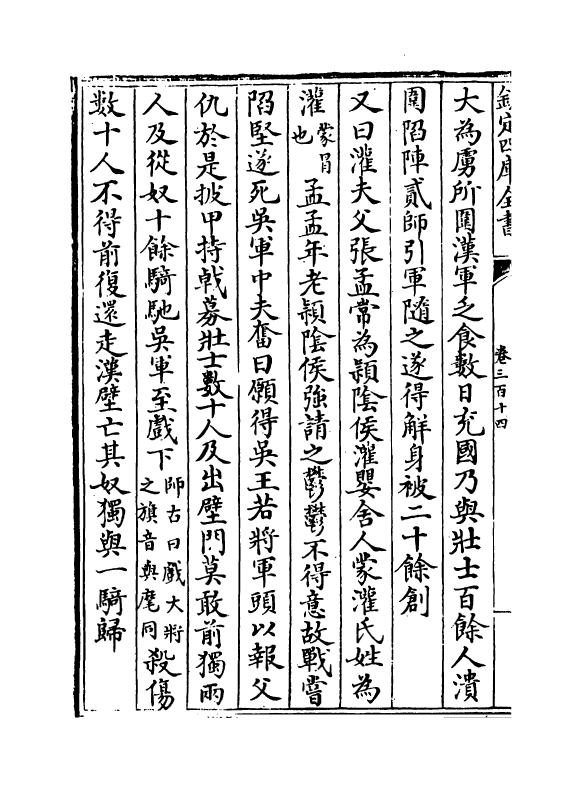 欽定四庫全書
卷三百十四
大為虜所圍漢軍乏食數日充國乃與壯士百餘人潰
圍陷陣貳師引軍隨之遂得解身被二十餘創
又曰灌夫父張孟常為潁陰侯灌嬰舍人蒙灌氏姓為
灌蒙冐也孟孟年老潁陰侯強請之鬱鬱不得意故戰嘗
陷堅遂死吳軍中夫奮曰願得吳王若將軍頭以報父
仇於是披甲持戟募壯士數十人及出壁門莫敢前獨兩
人及從奴十餘騎馳吳軍至戲下師古曰戲大將之旗音與麾同殺傷
數十人不得前復還走漢壁亡其奴獨與一騎歸